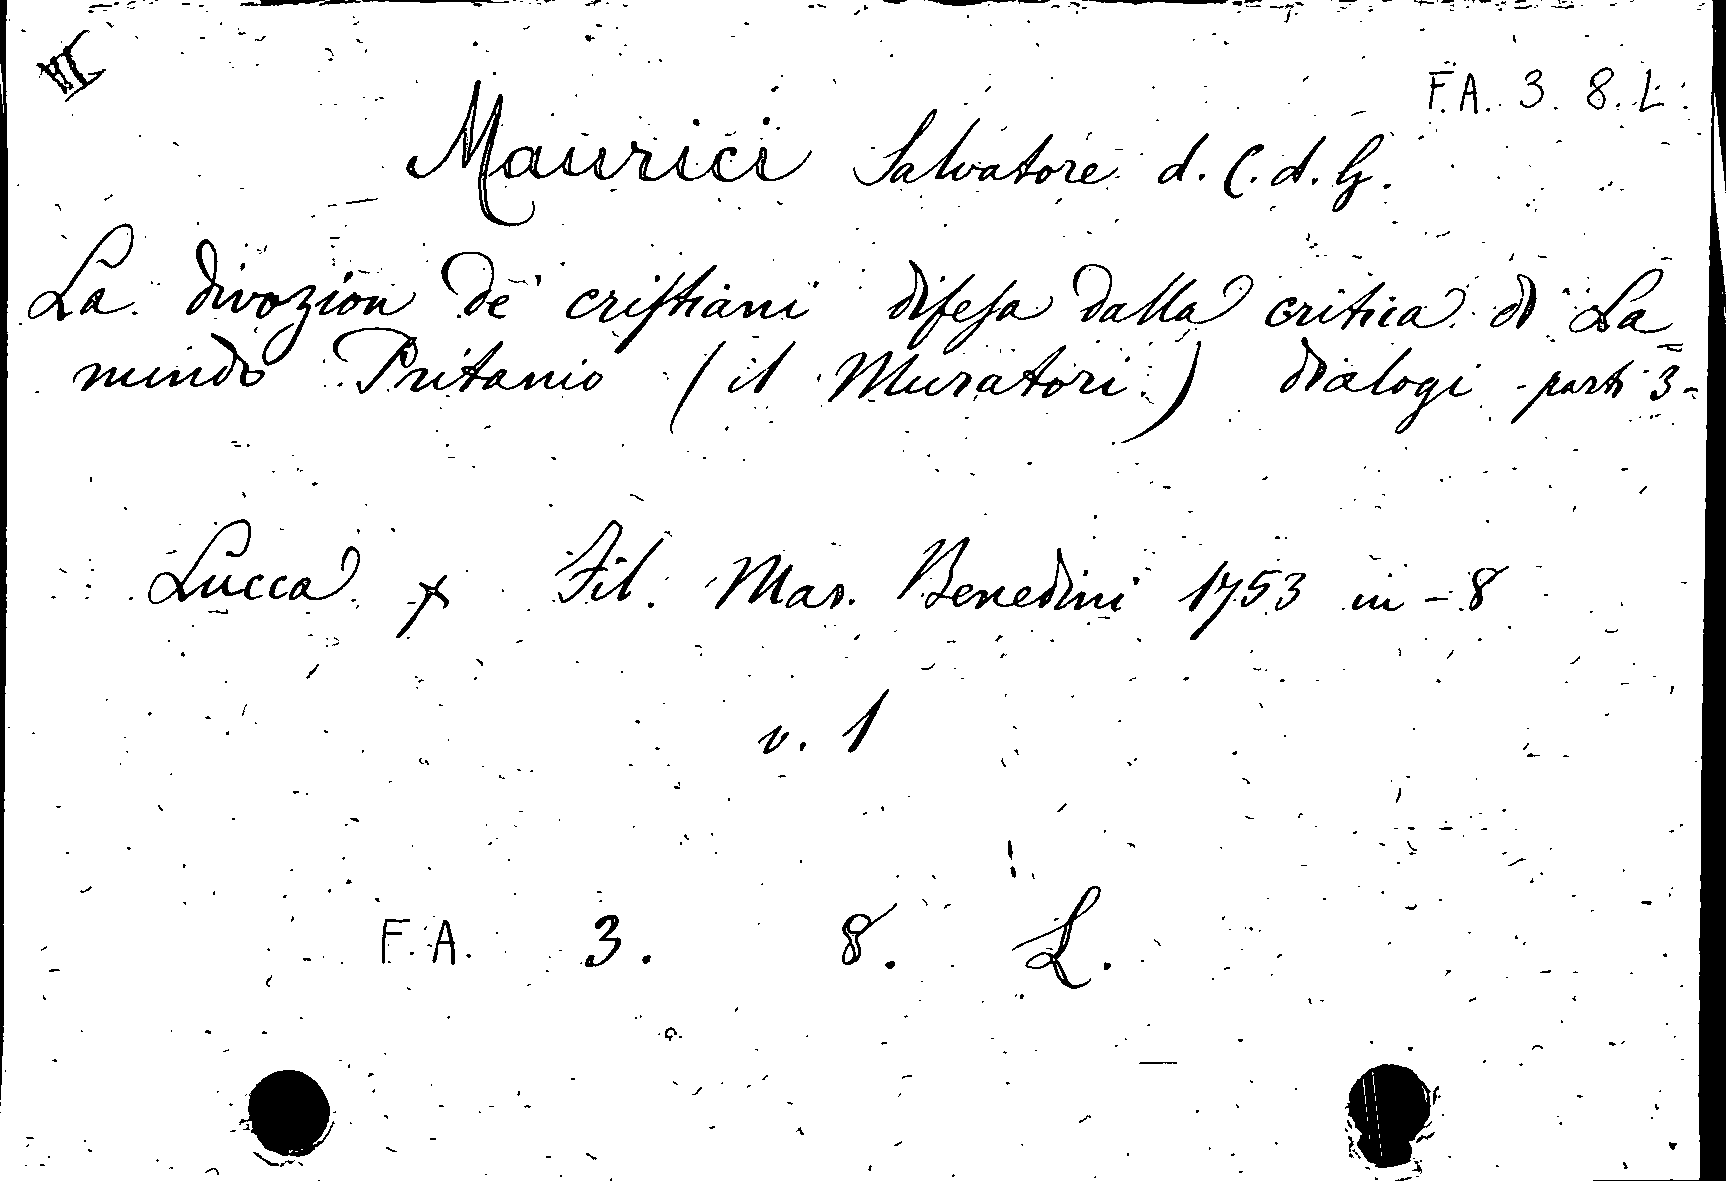 VII
F. A. 3. 8. L.
Maurici Salvatore d. C. d. G.
La divozion de' cristiani difesa dalla critica di La=
mindo Pritanio (il Muratori) dialogi - parti 3 -
Lucca x Fil. Mar. Benedini 1753 in - 8
v. 1
F. A. 3. 8. L.